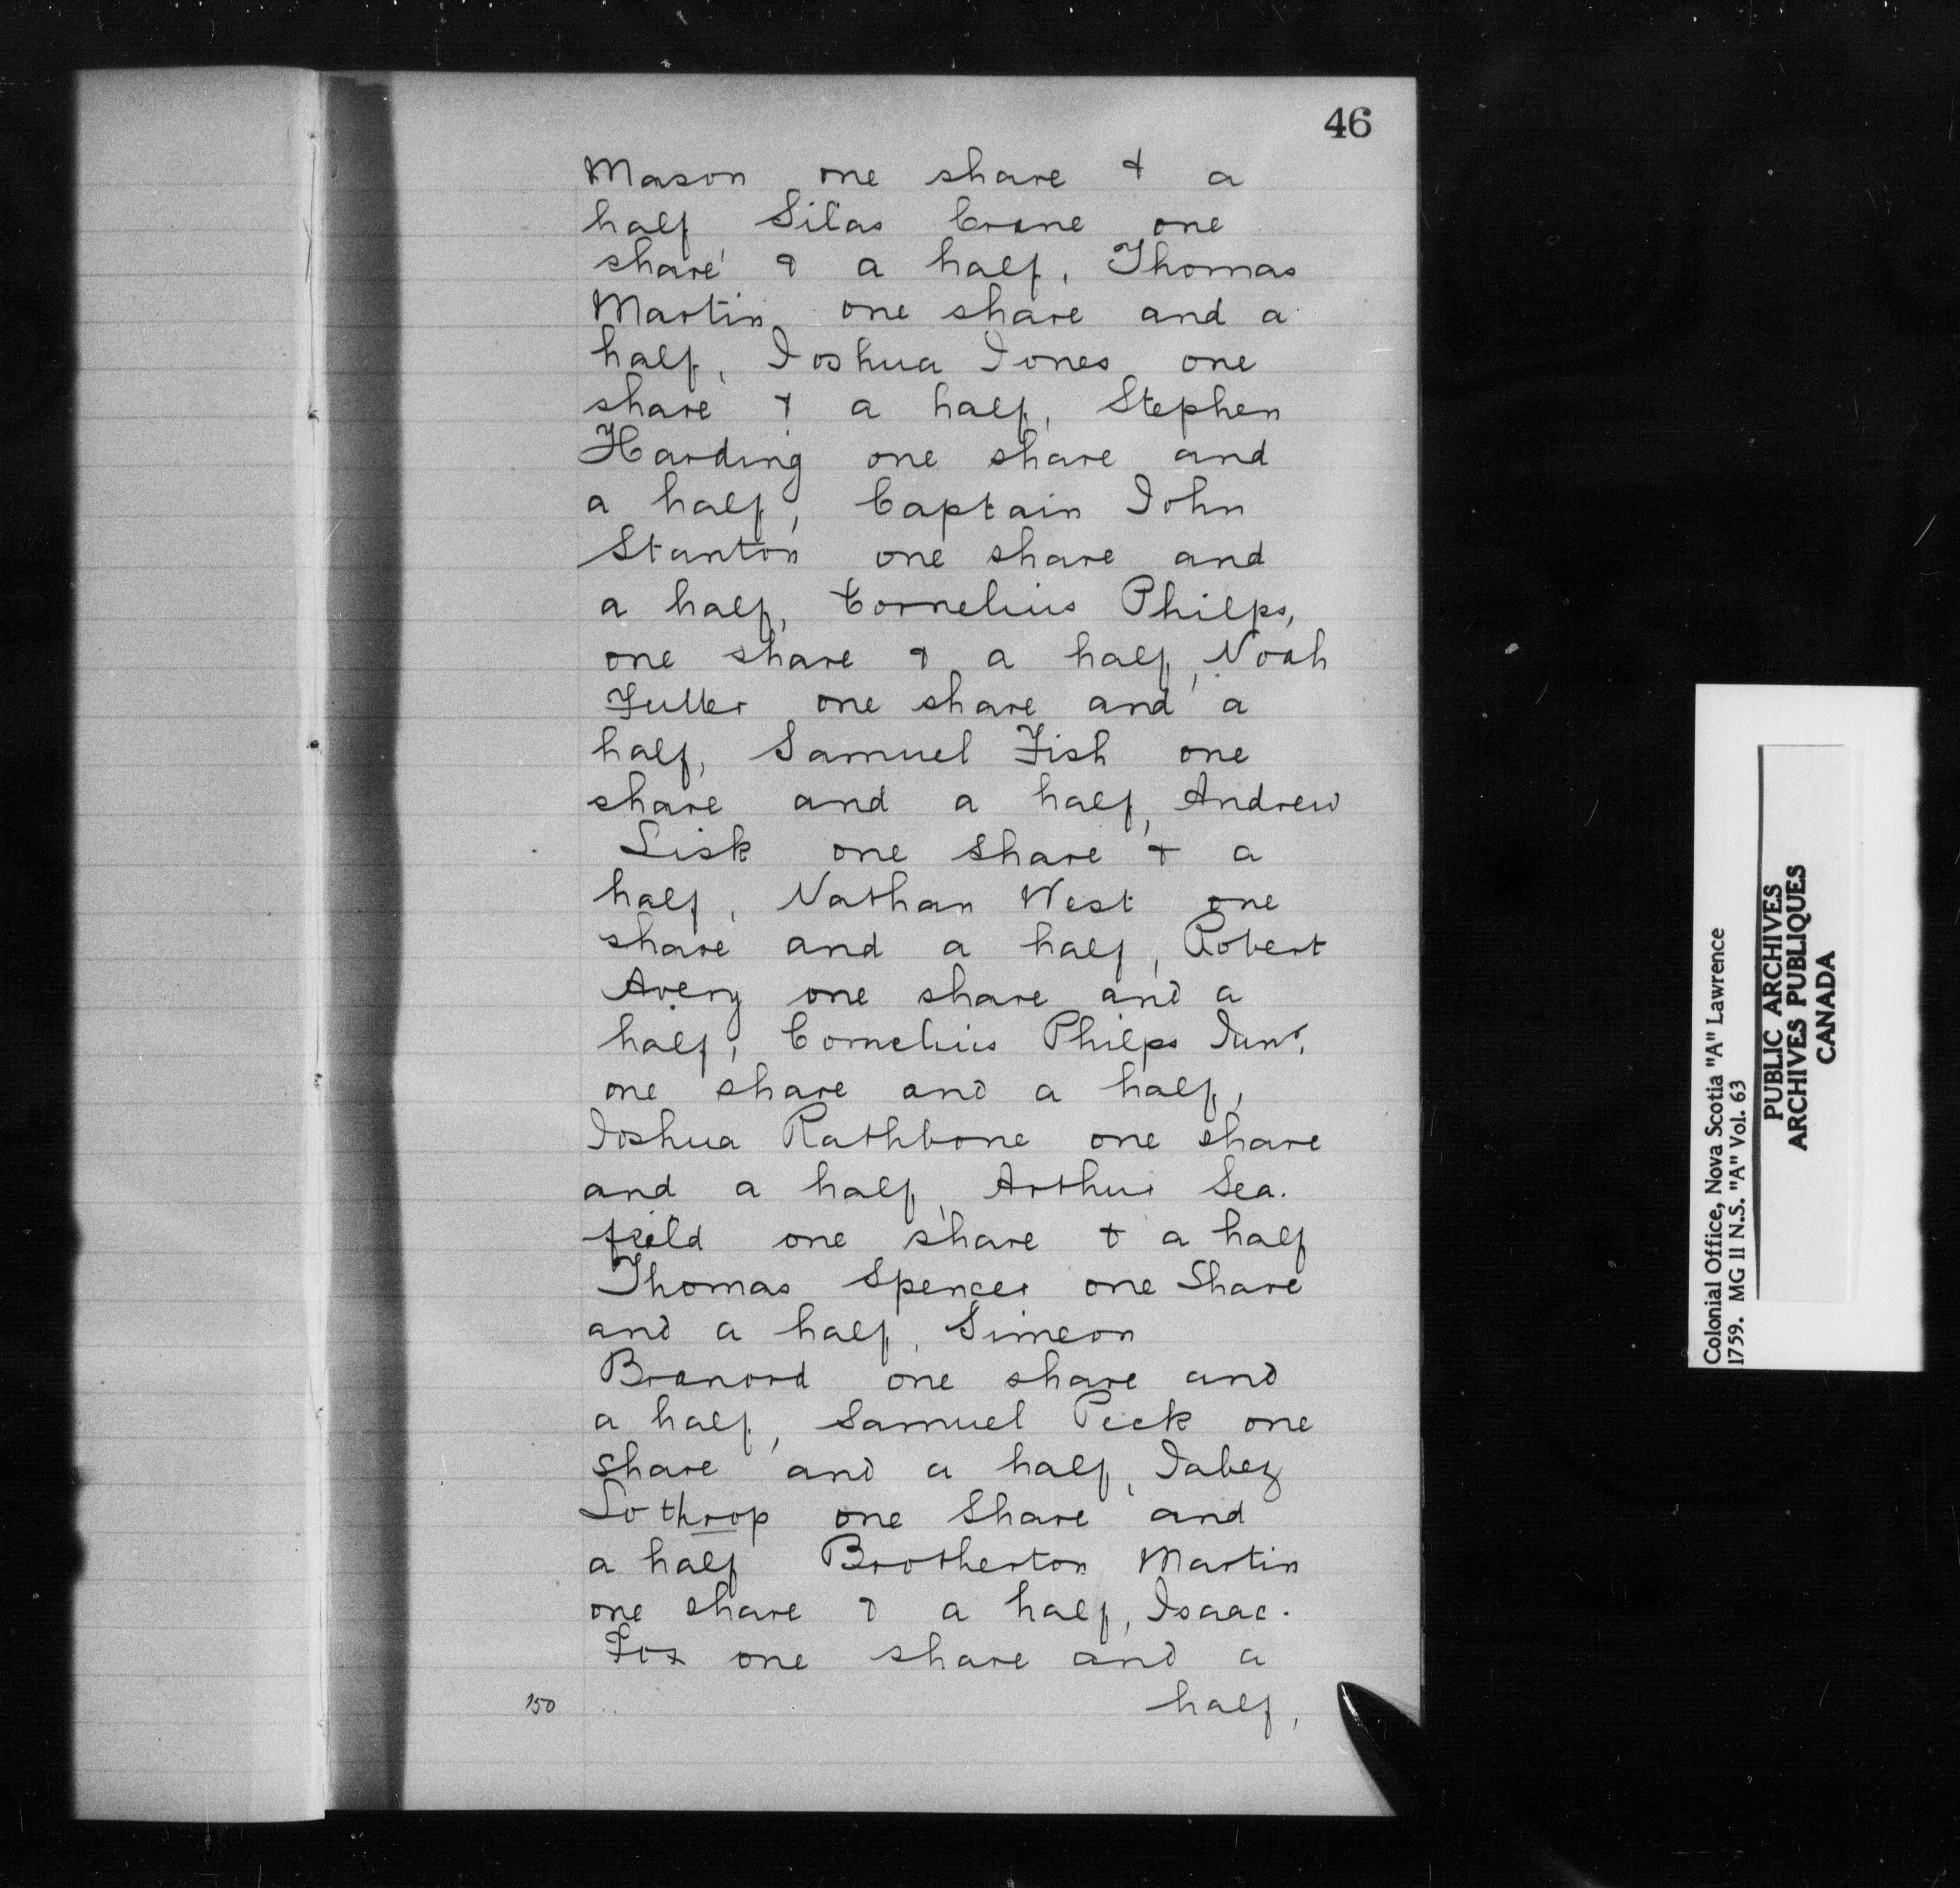 46
Mason one share & a
half Silas Crane one
share & a half, Thomas
Martin one share and a
half, Joshua Jones one
share & a half, Stephen
Harding one share and
a half, Captain John
Stanton one share and
a half, Cornelius Philps,
one share & a half, Noah
Fuller one share and a
half, Samuel Fish one
share and a half, Andrew
Lisk one share & a
half, Nathan West one
share and a half, Robert
Avery one share and a
half, Cornelius Philps Junr,
one share and a half,
Joshua Rathbone one share
and a half, Arthur Sea.
field one share & a half
Thomas Spencer one Share
and a half, Simeon
Branord one share and
a half, Samuel Peck one
share and a half, Jabez
Lothrop one Share and
a half Brotherton Martin
one share & a half, Isaac.
Fox one share and a
150 half,
Colonial Office, Nova Scotia "A" Lawrence
1759. MG II N.S. "A" Vol. 63
PUBLIC ARCHIVES
ARCHIVES PUBLIQUES
CANADA